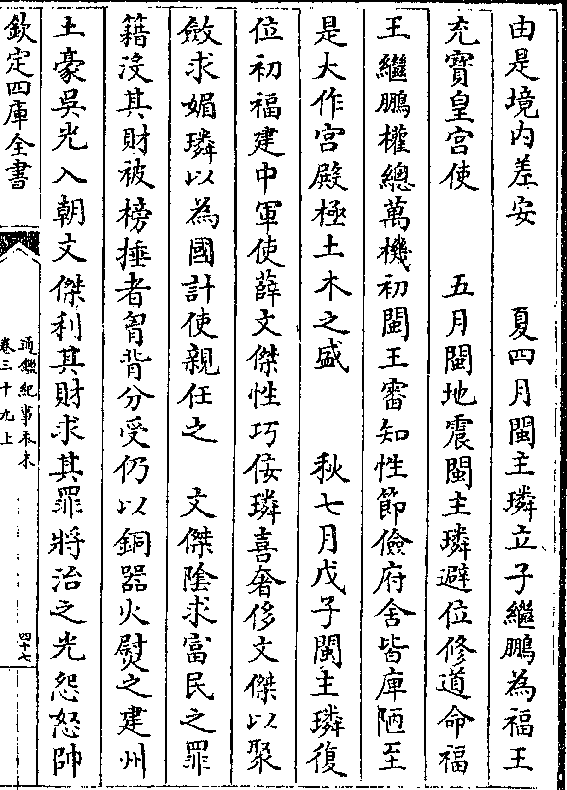 由是境内差安　　夏四月閩主璘立子繼鵬為福王
充寳皇宫使　　五月閩地震閩主璘避位修道命福
王繼鵬權總萬機初閩王審知性節儉府舍皆庳陋至
是大作宫殿極土木之盛　　秋七月戊子閩主璘復
位初福建中軍使薛文傑性巧佞璘喜奢侈文傑以聚
斂求媚璘以為國計使親任之　文傑陰求富民之罪
籍沒其財被榜捶者胷背分受仍以銅器火熨之建州
土豪吳光入朝文傑利其財求其罪將治之光怨怒帥
欽定四庫全書
通鑑紀事本末
卷三十九上
四十七